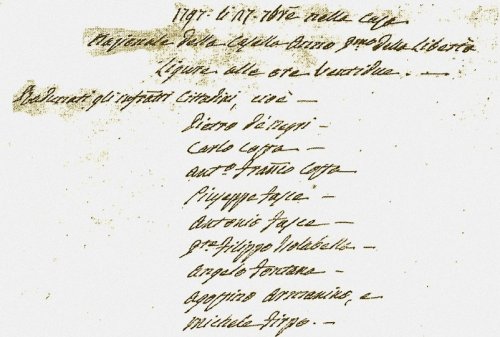 1797 li 17 7bre nella Casa
Nazionale della Casella Anno Pmo della Libertà
Ligure alle ore ventidue. —
Radunati gli infratti Cittadini, cioè —
Pietro de negri —
Carlo Cossa —
Anto Franco Cossa
Giuseppe Fasce —
Antonio Fasce —
Filippo —
Angelo Fontana —
Agostino Armanino, e
Michele Firpo. —